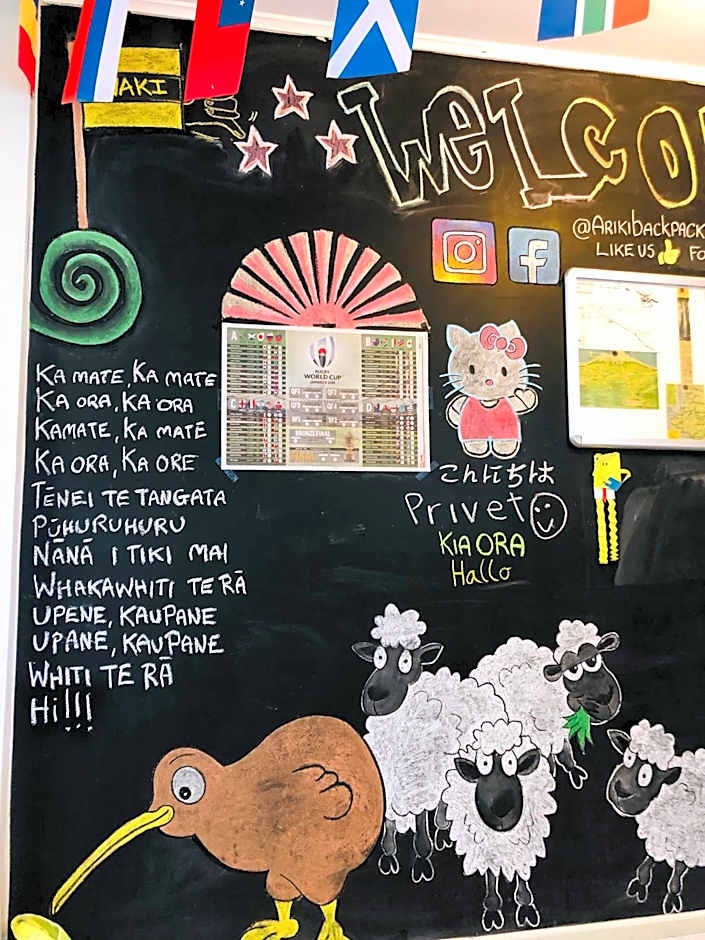 NAKI
WELCO
@ARIKIBACKPACK
LIKE US FO
A
RUGBY
WORLD CUP
B
C
D
BRONZE FINAL
FINAL
KA MATE, KA MATE
KA ORA, KA ORA
KAMATE, KA MATE
KA ORA, KA ORE
TĒNEI TE TANGATA
PŪHURUHURU
NĀNĀ I TIKI MAI
WHAKAWHITI TE RĀ
UPENE, KAUPANE
UPANE, KAUPANE
WHITI TE RĀ
Hi!!!
こんにちは
Privet
KIA ORA
Hallo